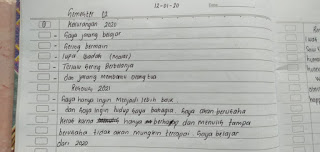 12-01-20
Date
Semester 12
Kekurangan 2020
- Saya jarang belajar
- Sering bermain
- lupa ibadah (maaf)
- Terlalu sering Berbelanja
- dan jarang membantu orang tua
Resolusi 2021
- Saya hanya ingin menjadi lebih baik
- dan Saya ingin hidup Saya bahagia. Saya akan berusaha
keras karna hanya berharap dan menulis tanpa
berusaha tidak akan mungkin tercapai. Saya belajar
dari 2020